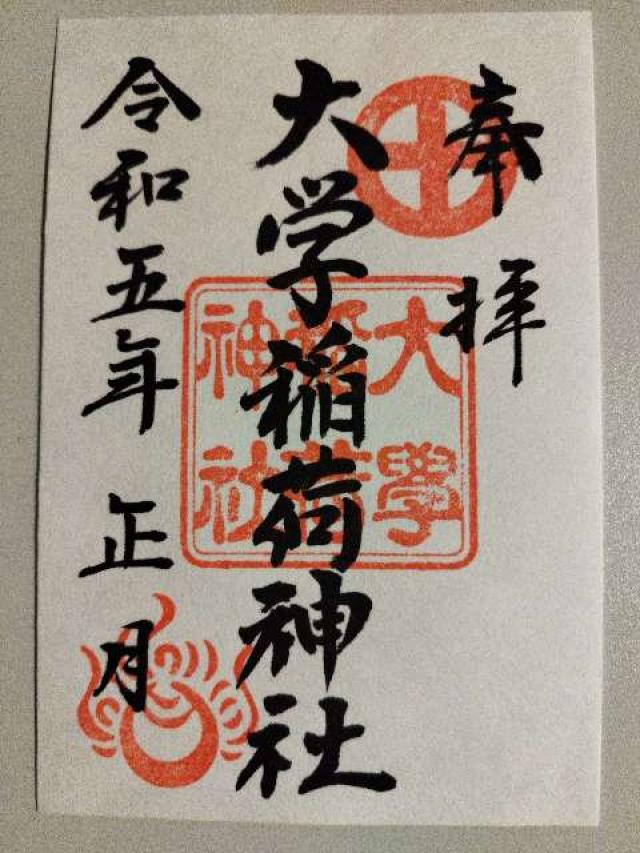 奉拝
大学稲荷神社
令和五年 正月
大學
稲荷
神社